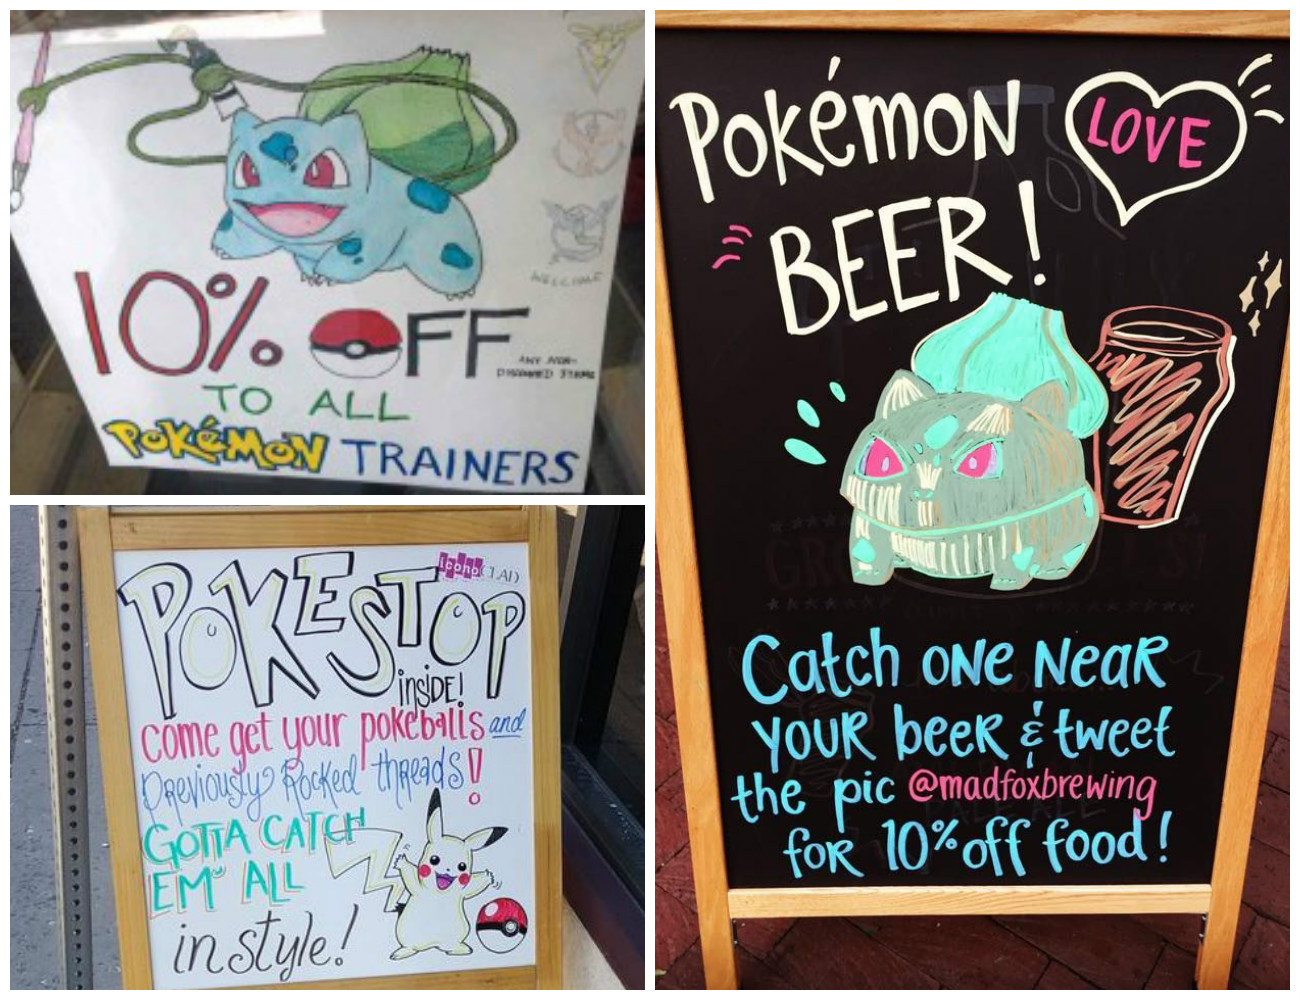 WELCOME
10% OFF
ANY NON-
DISCOUNTED ITEMS
TO ALL
POKéMON TRAINERS
POKESTOP
icono(CLAD)
insiDE!
Come get your pokeballs and
Previously Rocked threads!
GOTTA CATCH
EM' ALL
in style!
Pokémon LOVE
BEER!
Catch ONE NeaR
YOUR beeR & tweet
the pic @madfoxbrewing
foR 10% off food!